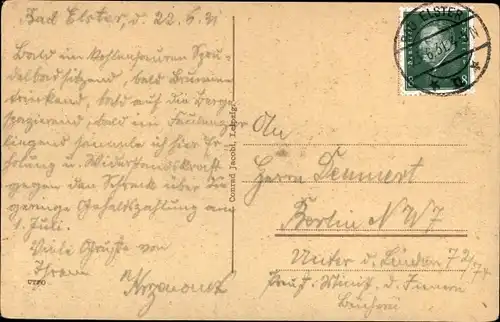 Bad Elster, d. 22. 6. 31
Bald im kohlensauren Spru-
delbad sitzend, bald Brunnen
trinkend, bald auf die Berge
spazierend, bald im Faulenzer
liegend sammle ich hier Er-
holung u. Widerstandskraft
gegen den Schreck über die
geringe Gehaltszahlung am
1. Juli.
Viele Grüße von
Ihrem
Conrad Jacobi, Leipzig.
BAD ELSTER
An
Herrn Dennert
Berlin NW 7
Unter d. Linden 72/74
Preuß. Minist. d. Innern
Bücherei